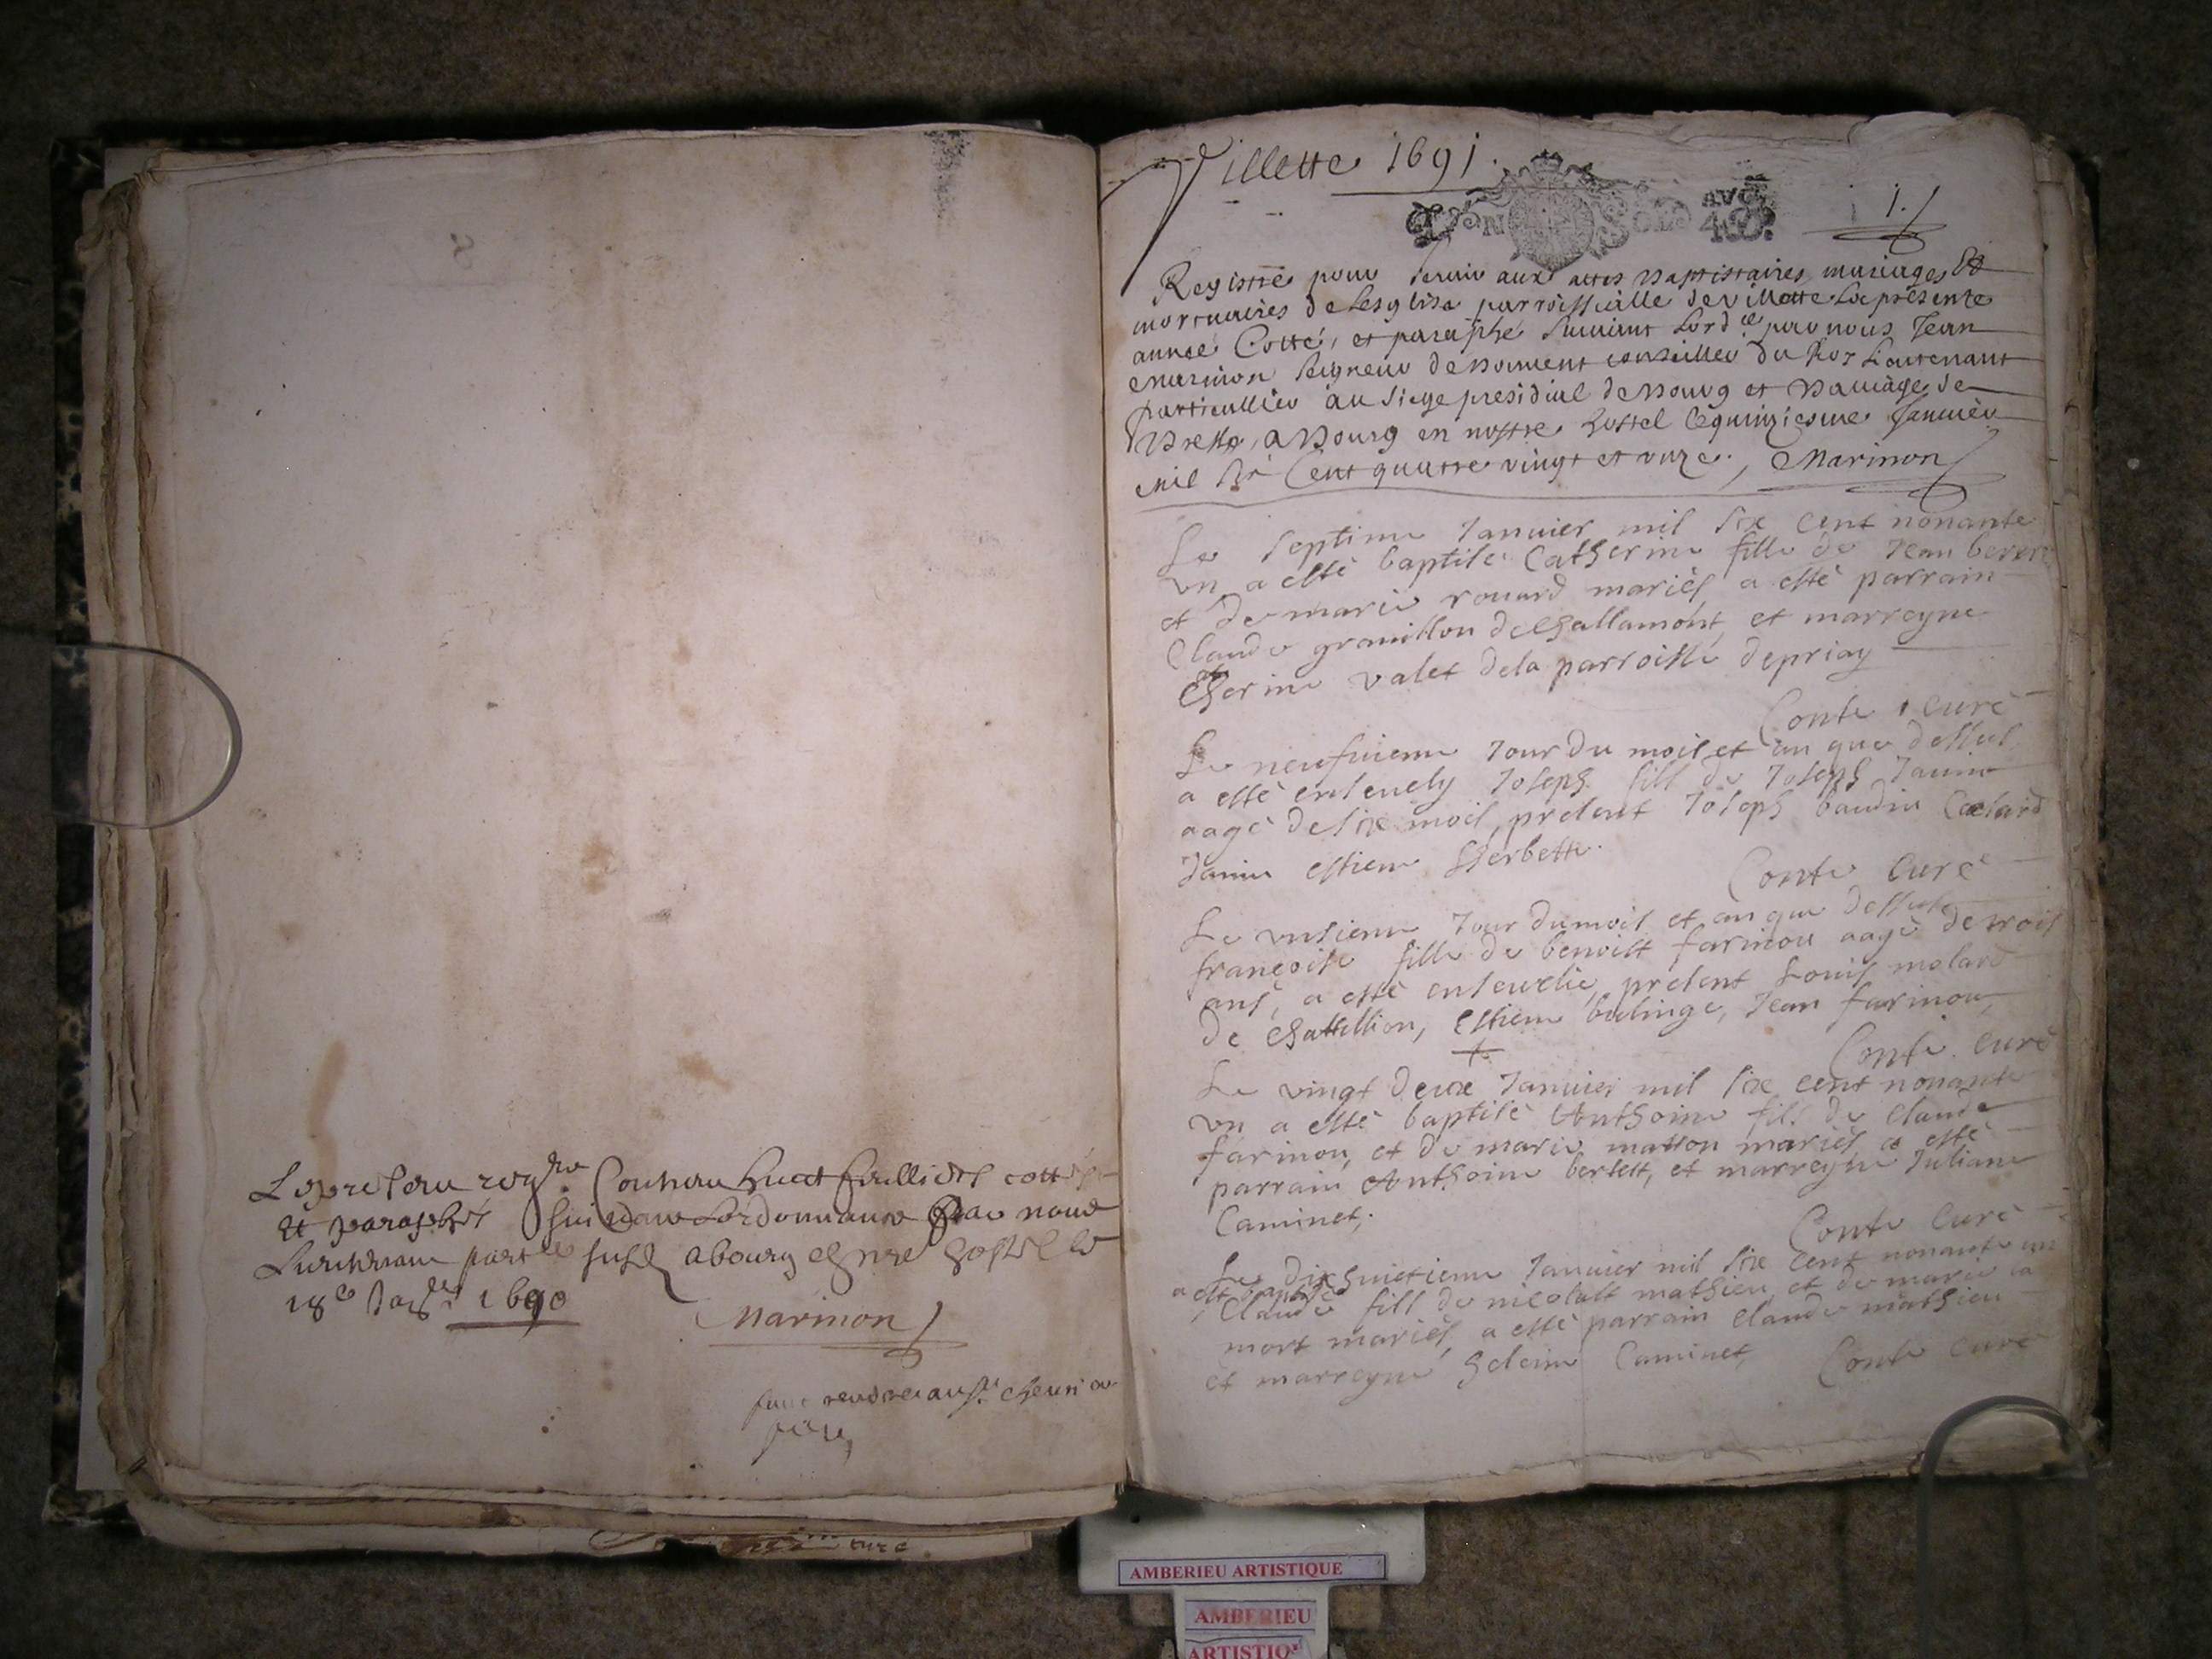 Le present regre Contenant huict feullietz cotté
et paraphé suivant Lordonnance par nous
Lieutenant partler susd abourg en nre hostel le
18e Janer 1690
Marinon
Villette 1691.
LYON SOLS 
1.
Registre pour servir aux actes Baptistaires, mariages et
mortuaires de Lesglise parroissialle de villette Lae presente
année Cotté, et paraphé suivant Lordce par nous Jean
Marinon seigneur de Boument conseiller du Roy Lieutenant
particullier au siege presidial de Bourg et Baillage de
Bresse, a Bourg en nostre hostel le quinziesme Janvier
mil six Cent quatre vingt et unze. Marinon
Le septime Janvier mil six cent nonante
un a esté baptisé Catherine fille de Jean
et de marie rouard mariés, a esté parrain
Claude gramillon de Challamont, et marreyne
Catherine valet dela parroisse depriay
Conte curé
Le neufvieme Jour du mois et an que dessus
a esté ensevely Joseph fils de Joseph Janin
aagé de six mois, present Joseph baudin
Janin estiene Herbette.
Conte Curé
Le unsieme Jour dumois et an que dessus
françoise fille de benoist farinou aagé de trois
ans, a esté ensevelie, present Louis molard
de Chastillion, Estiene bulinge, Jean farinou,
Conte curé
Le vingt deux Janvier mil six cent nonante
un a esté baptisé Anthoine fils de Claude
farinou, et de marie matton mariés, a esté
parrain Anthoine bertet, et marreyne Juliane
Caminet,
Conte Curé
Le dixhuictieme Janvier mil six cent nonante un
a esté baptisé
Claude fils de nicolas mathieu et de marie la
mort mariés, a esté parrain Claude mathieu
et marreyne heleine Caminet,
Conte curé
curé
AMBERIEU ARTISTIQUE
AMBERIEU
ARTISTIQ